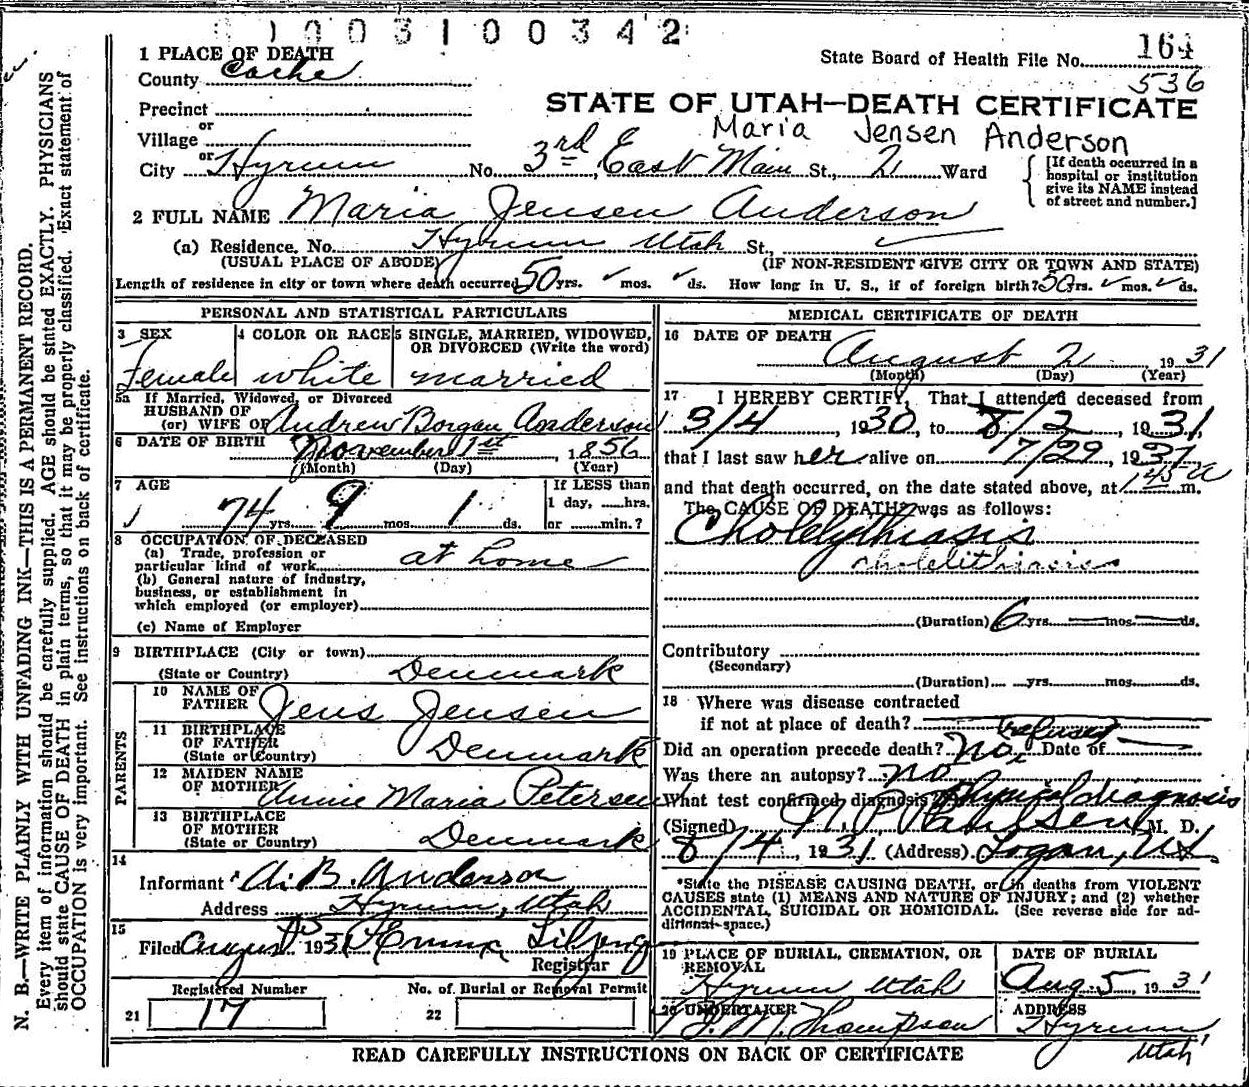 1003100342
1 PLACE OF DEATH
State Board of Health File No. 164
County Cache
536
Precinct
STATE OF UTAH—DEATH CERTIFICATE
or
Village
Maria Jensen Anderson
or
City Hyrum No. 3rd East Main St., 2 Ward
[If death occurred in a hospital or institution give its NAME instead of street and number.]
2 FULL NAME Maria Jensen Anderson
(a) Residence. No. Hyrum Utah St.,
(USUAL PLACE OF ABODE) (IF NON-RESIDENT GIVE CITY OR TOWN AND STATE)
Length of residence in city or town where death occurred 50 yrs. mos. ds. How long in U. S., if of foreign birth? 50 yrs. mos. ds.
PERSONAL AND STATISTICAL PARTICULARS
3 SEX
Female
4 COLOR OR RACE
white
5 SINGLE, MARRIED, WIDOWED, OR DIVORCED (Write the word)
married
5a If Married, Widowed, or Divorced
HUSBAND OF
(or) WIFE OF Andrew Borgan Anderson
6 DATE OF BIRTH November 1st, 1856
(Month) (Day) (Year)
7 AGE
74 yrs. 9 mos. 1 ds.
If LESS than
1 day, ......hrs.
or ......min.?
8 OCCUPATION OF DECEASED
(a) Trade, profession or
particular kind of work at home
(b) General nature of industry,
business, or establishment in
which employed (or employer)
(c) Name of Employer
9 BIRTHPLACE (City or town)
(State or Country) Denmark
PARENTS
10 NAME OF
FATHER Jens Jensen
11 BIRTHPLACE
OF FATHER
(State or Country) Denmark
12 MAIDEN NAME
OF MOTHER Annie Maria Petersen
13 BIRTHPLACE
OF MOTHER
(State or Country) Denmark
14
Informant A. B. Anderson
Address Hyrum, Utah
15
Filed August 5 1931
Registrar
Registered Number
21 17
No. of Burial or Removal Permit
22
MEDICAL CERTIFICATE OF DEATH
16 DATE OF DEATH
August 2 1931
(Month) (Day) (Year)
17 I HEREBY CERTIFY, That I attended deceased from
3/4, 1930, to 8/2, 1931,
that I last saw her alive on 7/29, 1931
and that death occurred, on the date stated above, at 1 45 a m.
The CAUSE OF DEATH* was as follows:
Cholelythiasis
cholelithiasis
(Duration) 6 yrs. — mos. — ds.
Contributory
(Secondary)
(Duration) yrs. mos. ds.
18 Where was disease contracted
if not at place of death?
refused
Did an operation precede death? no. Date of —
Was there an autopsy? no
What test confirmed diagnosis? Physical diagnosis
(Signed) M. D.
8/4, 1931 (Address) Logan, Ut
*State the DISEASE CAUSING DEATH, or in deaths from VIOLENT
CAUSES state (1) MEANS AND NATURE OF INJURY; and (2) whether
ACCIDENTAL, SUICIDAL OR HOMICIDAL. (See reverse side for ad-
ditional space.)
19 PLACE OF BURIAL, CREMATION, OR
REMOVAL
Hyrum Utah
DATE OF BURIAL
Aug. 5, 1931
20 UNDERTAKER
M. Thompson
ADDRESS
Hyrum
Utah
READ CAREFULLY INSTRUCTIONS ON BACK OF CERTIFICATE
N. B.—WRITE PLAINLY WITH UNFADING INK—THIS IS A PERMANENT RECORD.
Every item of information should be carefully supplied. AGE should be stated EXACTLY. PHYSICIANS
should state CAUSE OF DEATH in plain terms, so that it may be properly classified. Exact statement of
OCCUPATION is very important. See instructions on back of certificate.